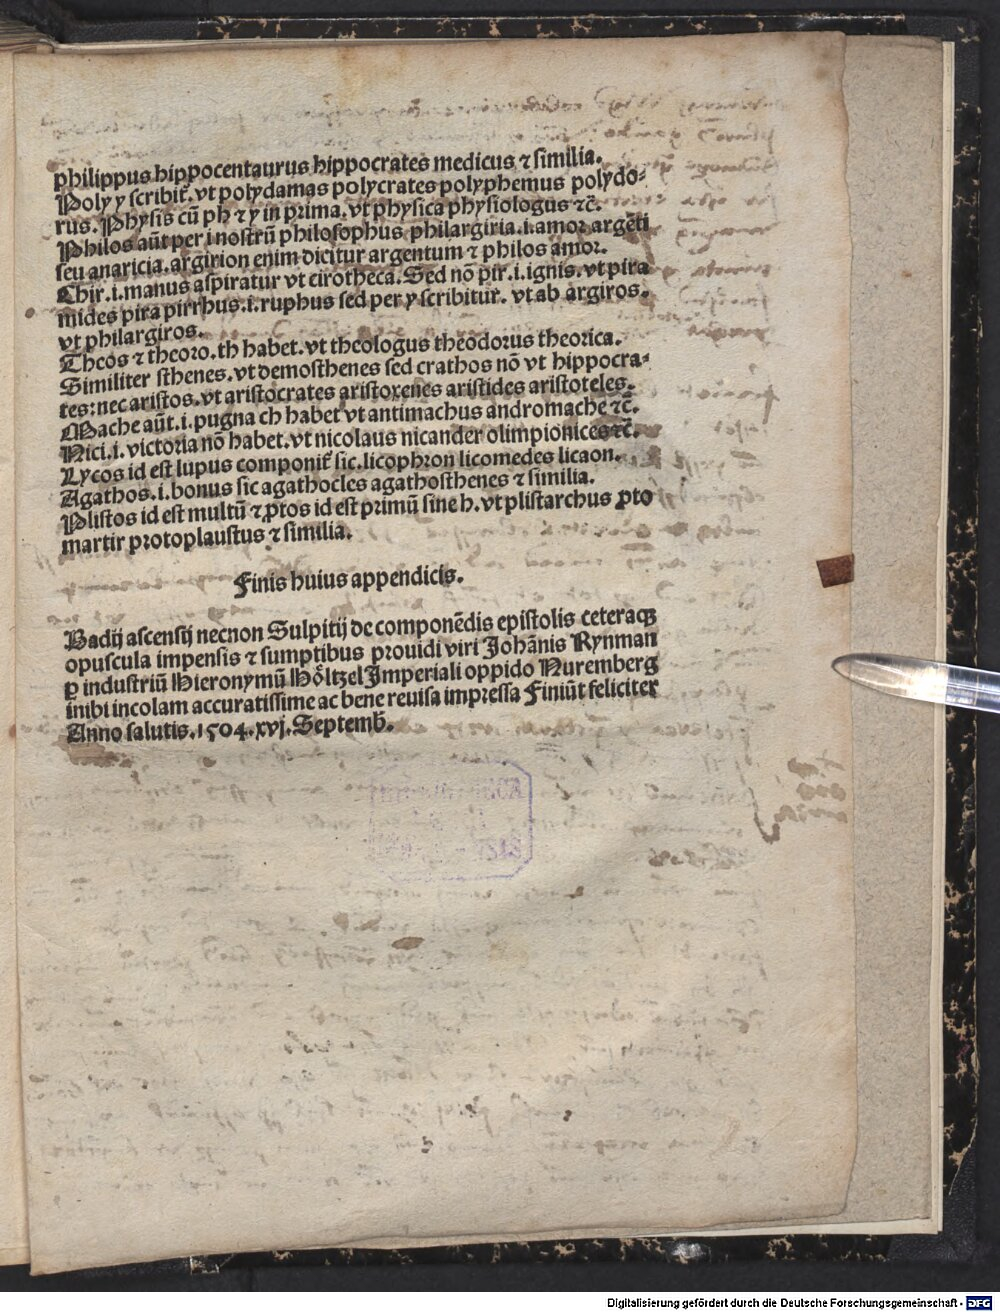 philippus hippocentaurus hippocrates medicus ⁊ similia.
Poly y scribit̃. vt polydamas polycrates polyphemus polydo⸗
rus. Physis cū ph ⁊ y in prima. vt physica physiologus ⁊c̃.
Philos aūt per i nostrū philosophus philargiria .i. amor argēti
seu anaricia. argirion enim dicitur argentum ⁊ philos amor.
Chir .i. manus aspiratur vt cirotheca. Sed nō pir .i. ignis. vt pira
mides pira pirrhus .i. ruphus sed per y scribitur. vt ab argiros.
vt philargiros.
Theos ⁊ theoro. th habet. vt theologus theodorus theorica.
Similiter sthenes. vt demosthenes sed crathos nō vt hippocra⸗
tes: nec aristos. vt aristocrates aristoxenes aristides aristoteles.
Mache aūt .i. pugna ch habet vt antimachus andromache ⁊c̃.
Nici .i. victoria nō habet. vt nicolaus nicander olimpionices ⁊c̃.
Lycos id est lupus componit̃ sic. licophron licomedes licaon.
Agathos .i. bonus sic agathocles agathosthenes ⁊ similia.
Plistos id est multū ⁊ ꝓtos id est primū sine h. vt plistarchus ꝓto
martir protoplaustus ⁊ similia.
Finis huius appendicis.
Badij ascensij necnon Sulpitij de componēdis epistolis ceteraqꝫ
opuscula impensis ⁊ sumptibus prouidi viri Johānis Rynman
ꝑ industriū Hieronymū Hoͤltzel Imperiali oppido Nuremberg
inibi incolam accuratissime ac bene reuisa impressa Finiūt feliciter
Anno salutis. 1504. xvj. Septemb̃.
Digitalisierung gefördert durch die Deutsche Forschungsgemeinschaft - DFG